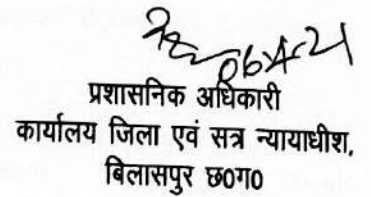 प्रशासनिक अधिकारी
कार्यालय जिला एवं सत्र न्यायाधीश,
बिलासपुर छ0ग0